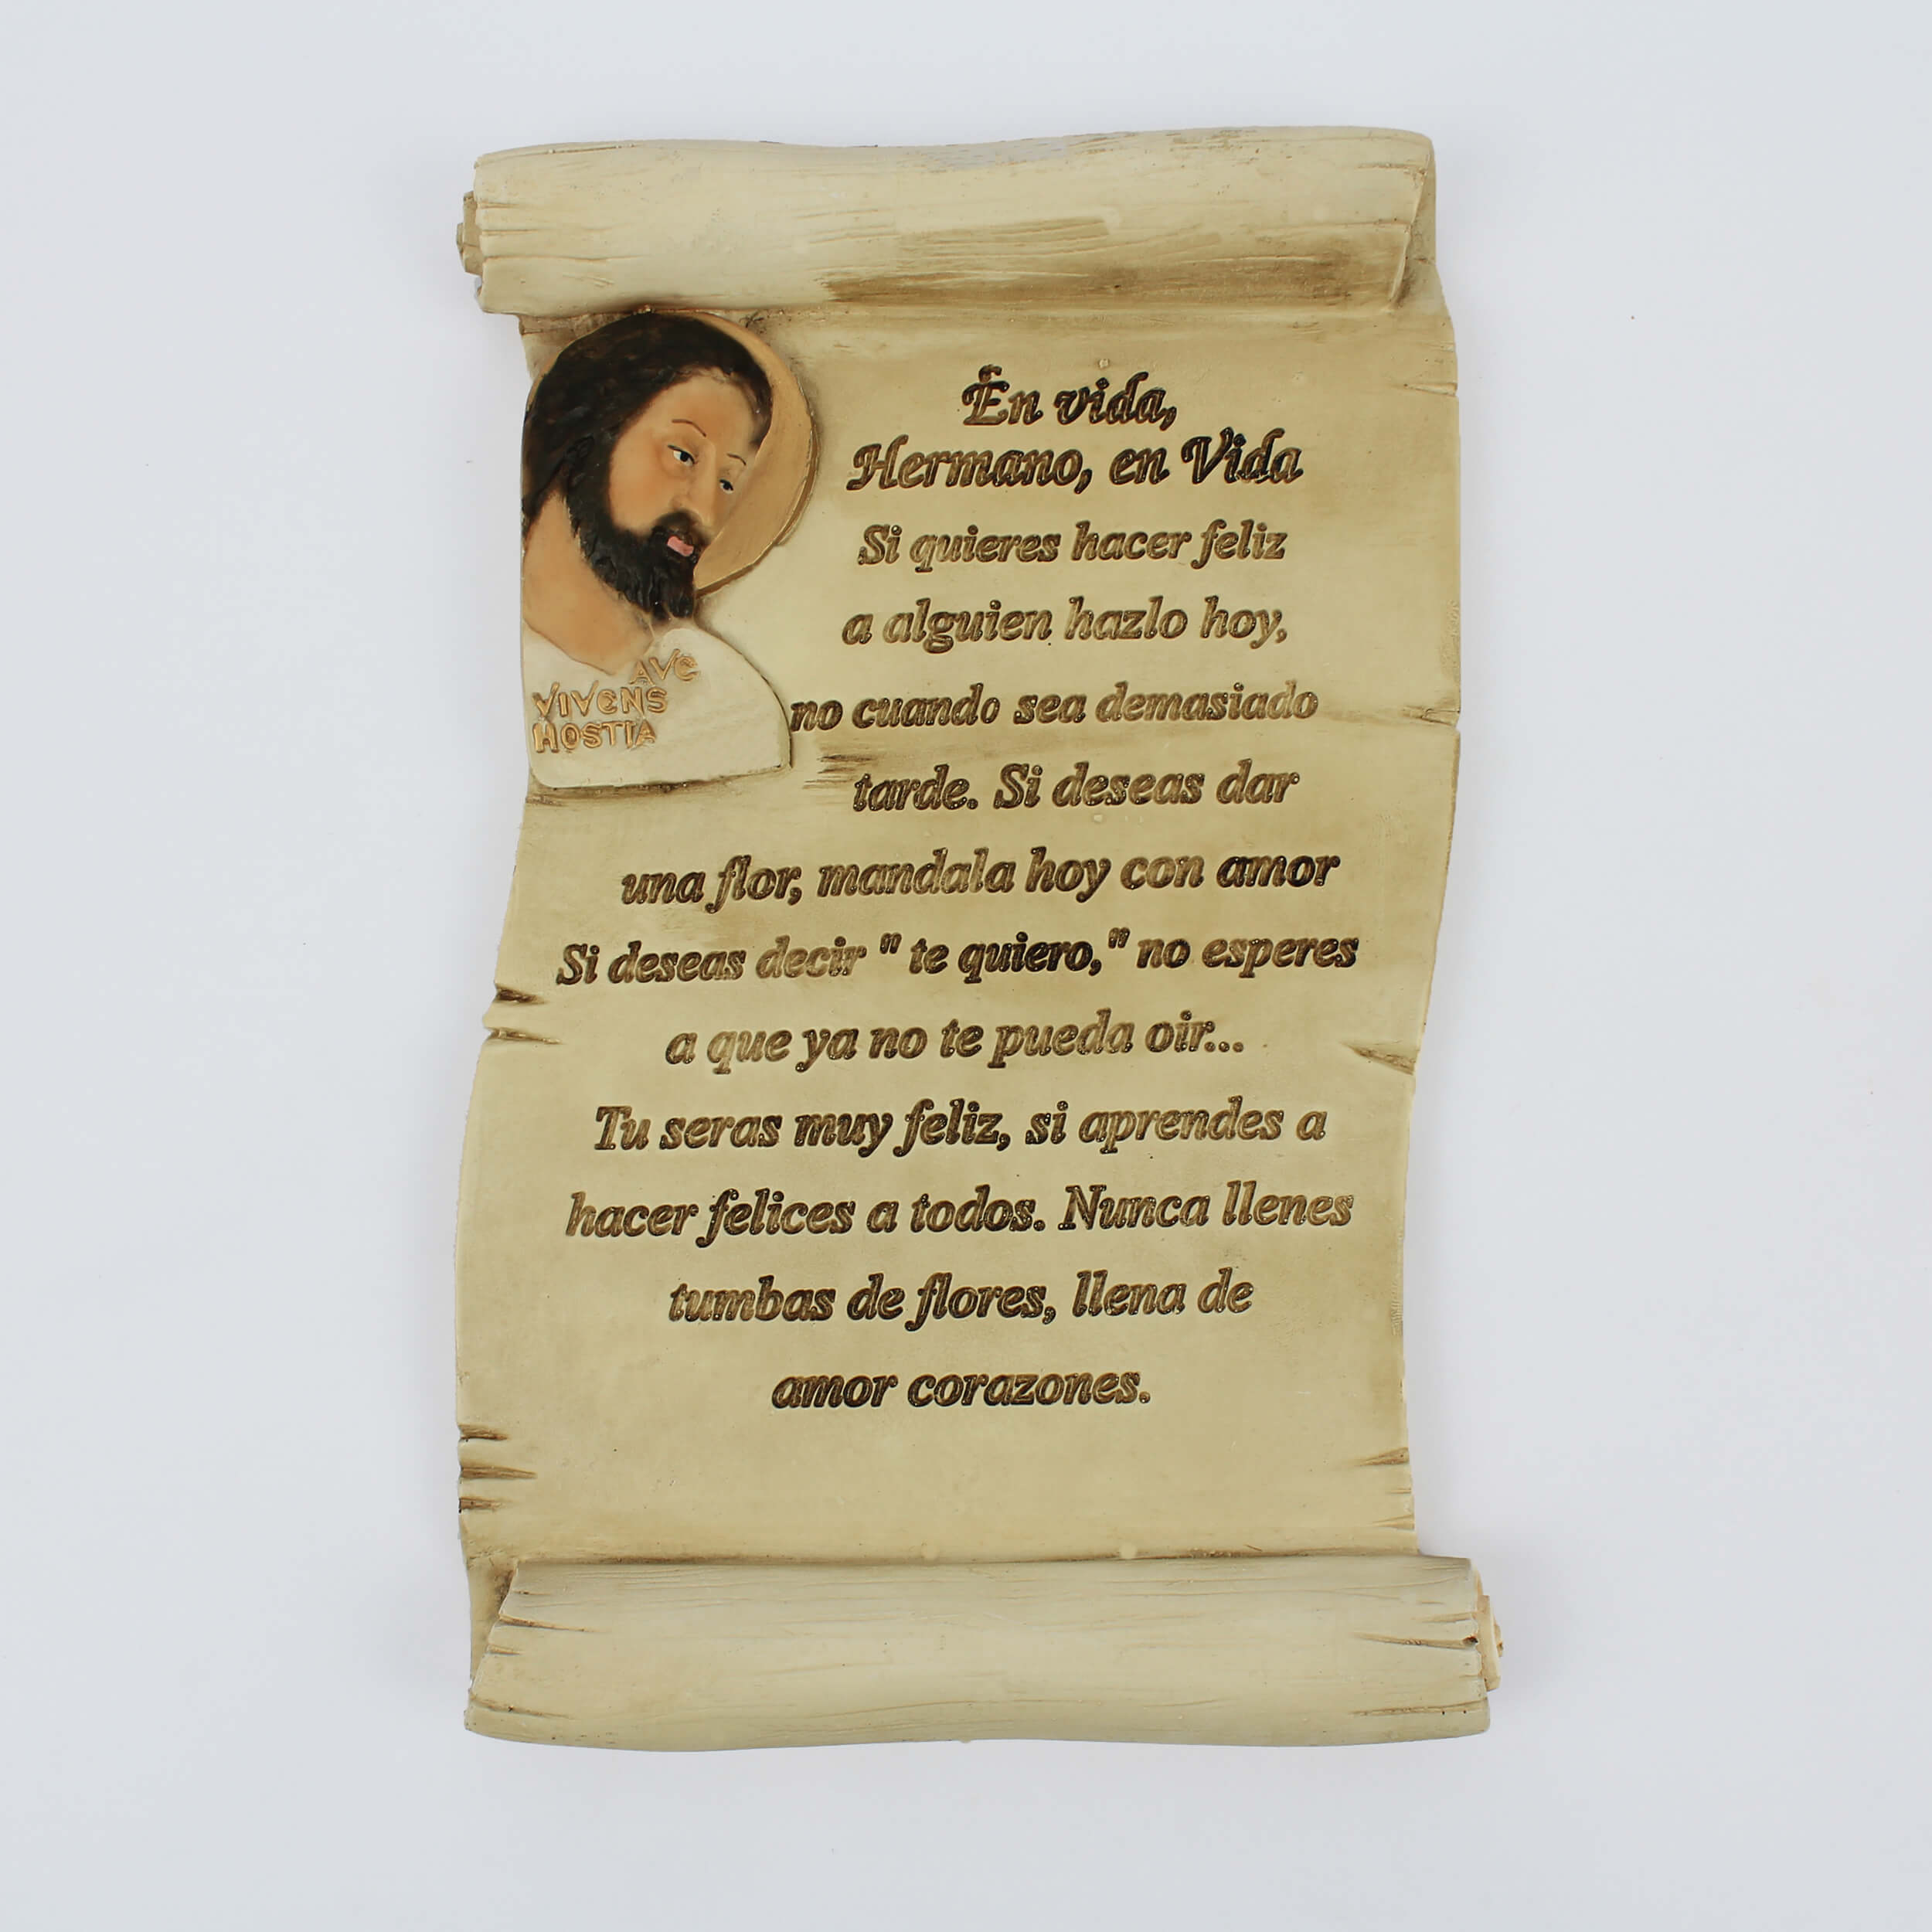 En vida,
Hermano, en Vida
Si quieres hacer feliz
a alguien hazlo hoy,
no cuando sea demasiado
tarde. Si deseas dar
una flor, mandala hoy con amor
Si deseas decir " te quiero," no esperes
a que ya no te pueda oir...
Tu seras muy feliz, si aprendes a
hacer felices a todos. Nunca llenes
tumbas de flores, llena de
amor corazones.
AVE
VIVENS
HOSTIA